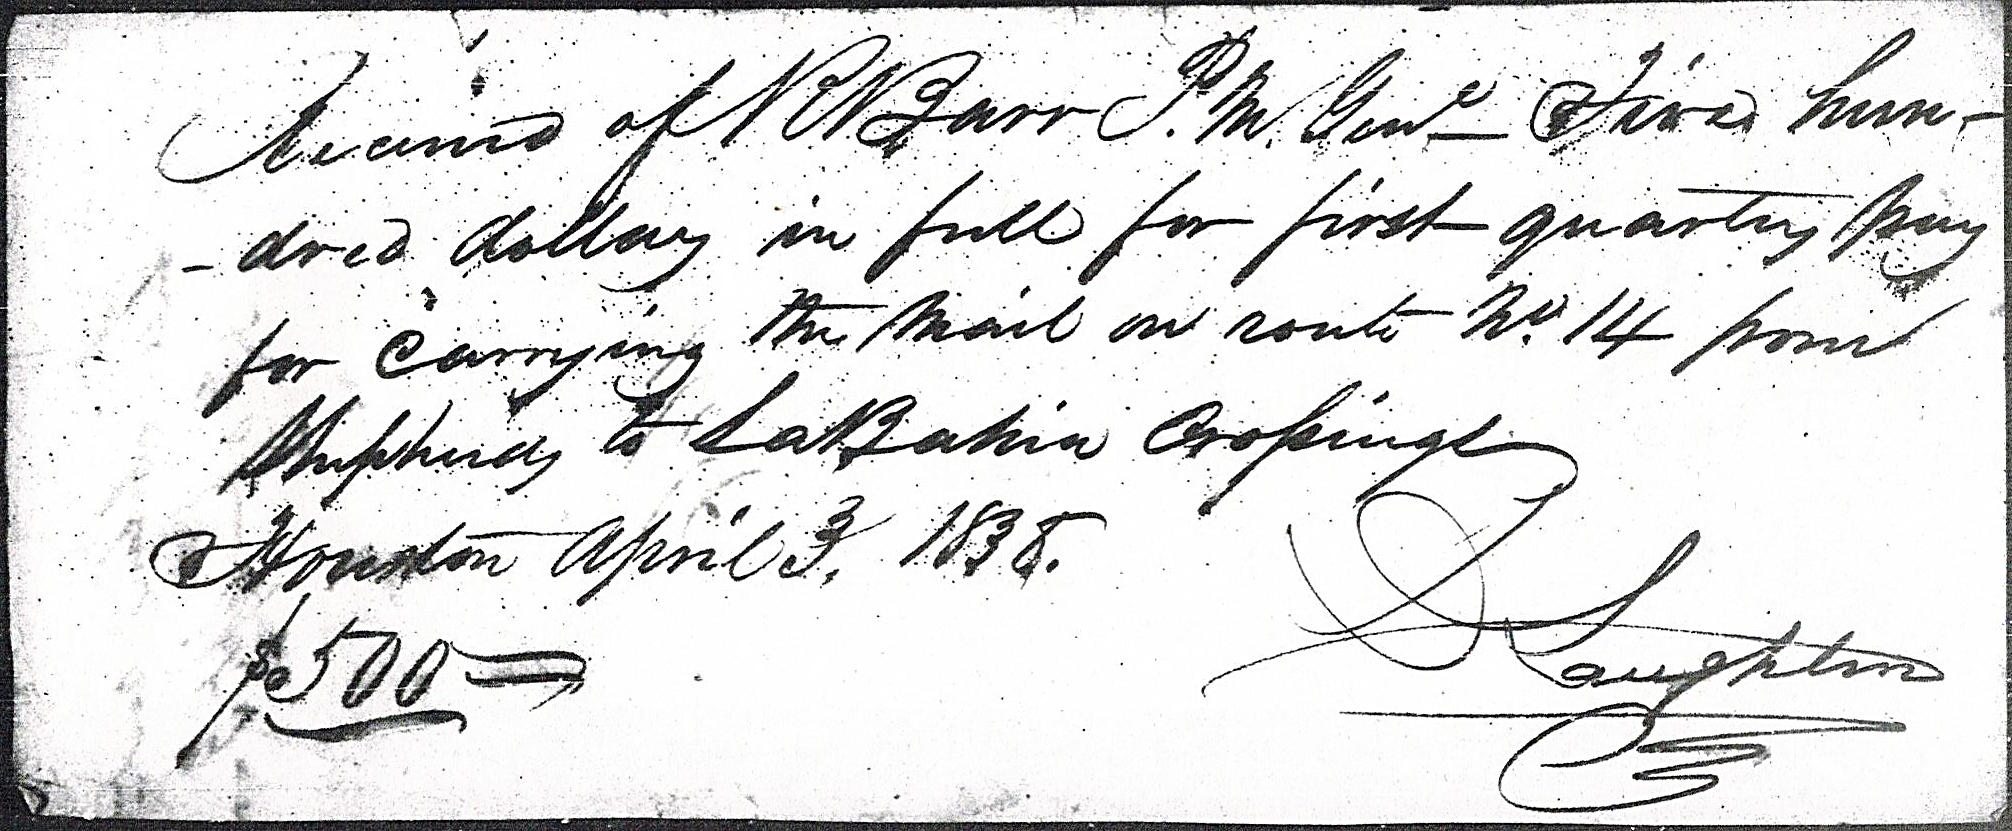 Received of R Barr P.M. Genl Five hun-
-dred dollars in full for first quarters pay
for carrying the Mail on route No. 14 from
Shepherds to LaBahia Crossings
Houston April 3, 1838.
$500
Laughlin